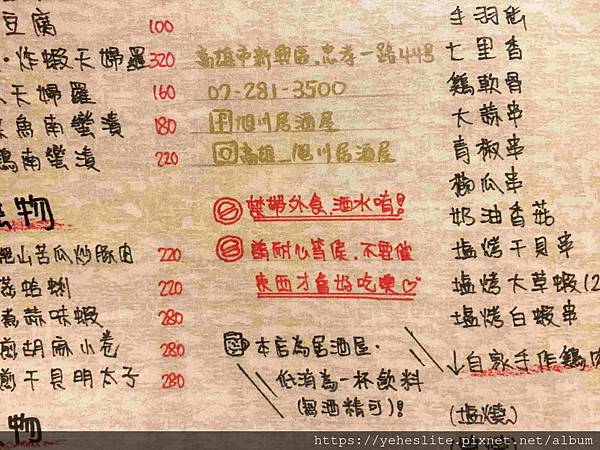 豆腐 100
・炸蝦天婦羅 320
天婦羅 160
魚南蠻漬 180
南蠻漬 220
物
山苦瓜炒豚肉 220
蛤蜊 220
蒜味蝦 280
胡麻小卷 280
煎干貝明太子 280
物
高雄市新興區.忠孝一路448
07-281-3500
旭川居酒屋
高雄_旭川居酒屋
禁帶外食.酒水唷!
請耐心等候.不要催
東西才會好吃噢♡
本店為居酒屋.
低消為一杯飲料
(無酒精可)!
手羽
七里香
雞軟骨
大蒜串
青椒串
櫛瓜串
奶油香菇
塩烤干貝串
塩烤大草蝦(2
塩烤白蝦串
↓自家手作雞肉
(塩燒)
https://yeheslite.pixnet.net/album